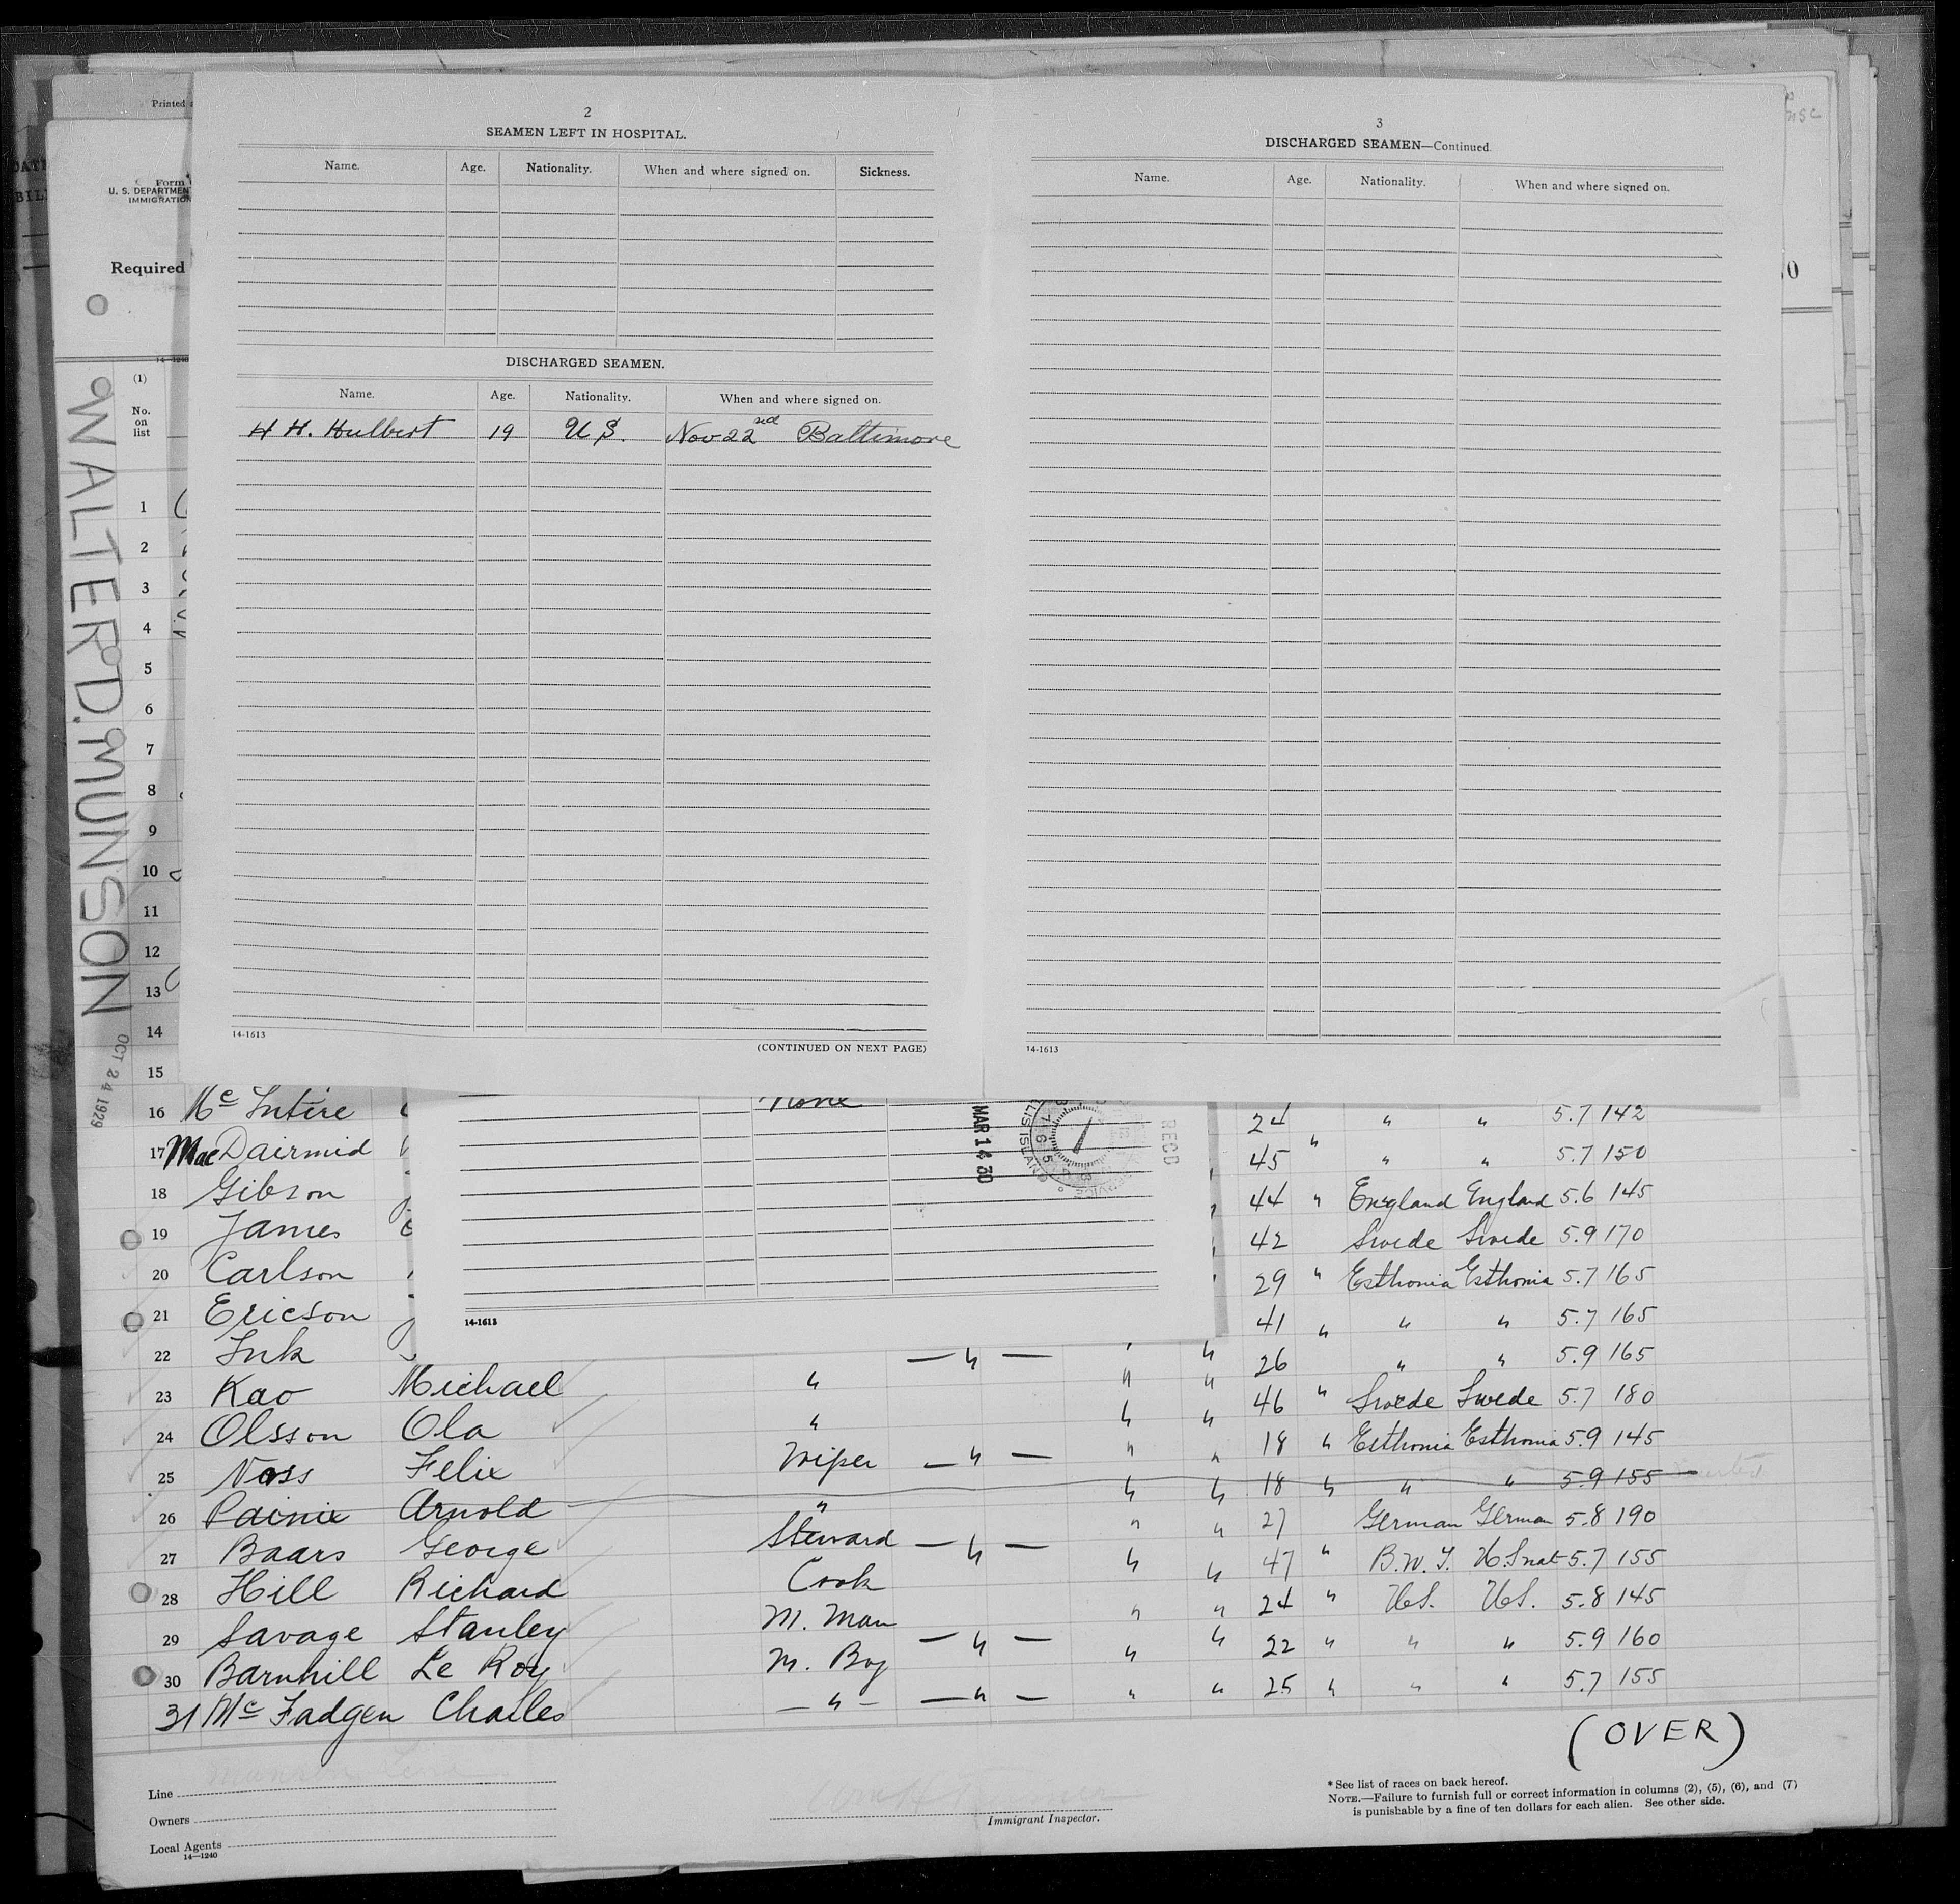 2
SEAMEN LEFT IN HOSPITAL.
Name. Age. Nationality. When and where signed on. Sickness.
DISCHARGED SEAMEN.
Name. Age. Nationality. When and where signed on.
H H. Hulbert 19 U.S. Nov 22nd Baltimore
14-1613
(CONTINUED ON NEXT PAGE)
3
DISCHARGED SEAMEN—Continued
Name. Age. Nationality. When and where signed on.
14-1613
Printed
Form
U. S. DEPARTMENT
IMMIGRATION
Required
14-1240
(1)
No.
on
list
WALTER D. MUNSON
OCT 24 1929
1
2
3
4
5
6
7
8
9
10
11
12
13
14
15
None
MAR 14 30
RECD
14-1613
16 Mc Intire 24 " " 5.7 142
17 Mac Dairmid 45 " " " 5.7 150
18 Gibson 44 " England England 5.6 145
19 James 42 Swede Swede 5.9 170
20 Carlson 29 " Esthonia Esthonia 5.7 165
21 Ericson 41 " " " 5.7 165
22 Ink — " — " " 26 " " 5.9 165
23 Kao Michael " " " 46 " Swede Swede 5.7 180
24 Olsson Ola " " " 18 " Esthonia Esthonia 5.9 145
25 Noss Felix Wiper — " — " " 18 " " " 5.9 155
26 Arnold " " " 27 German German 5.8 190
27 Baars George Steward — " — " " 47 " B.W.I. U.S nat 5.7 155
28 Hill Richard Cook " " 24 " U.S. U.S. 5.8 145
29 Savage Stanley M. Man — " — " " 22 " " " 5.9 160
30 Barnhill Le Roy M. Boy " " 25 " " " 5.7 155
31 Mc Fadgen Charles — " — — " — " "
(OVER)
Line
Owners
Local Agents
14-1240
Immigrant Inspector.
* See list of races on back hereof.
NOTE.—Failure to furnish full or correct information in columns (2), (5), (6), and (7)
is punishable by a fine of ten dollars for each alien. See other side.